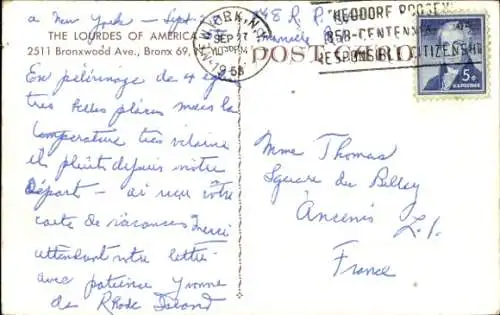 a New York – Sept. 2
THE LOURDES OF AMERICA
2511 Bronxwood Ave., Bronx 69, N.
En pélerinage de 4
très belles places mais la
température très vilaine
il pleut depuis notre
Départ – ai reçu votre
carte de vacances Merci
attendant votre lettre
avec patience Yvonne
de Rhode Island
NEW YORK, N.Y.
SEP 27
1958
POST CARD
THEODORE ROOSEV
1858-CENTENNIAL-1958
RESPONSIBLE CITIZENSHIP
5¢
U.S. POSTAGE
Mme Thomas
Square du Bellay
Ancenis
L. I.
France